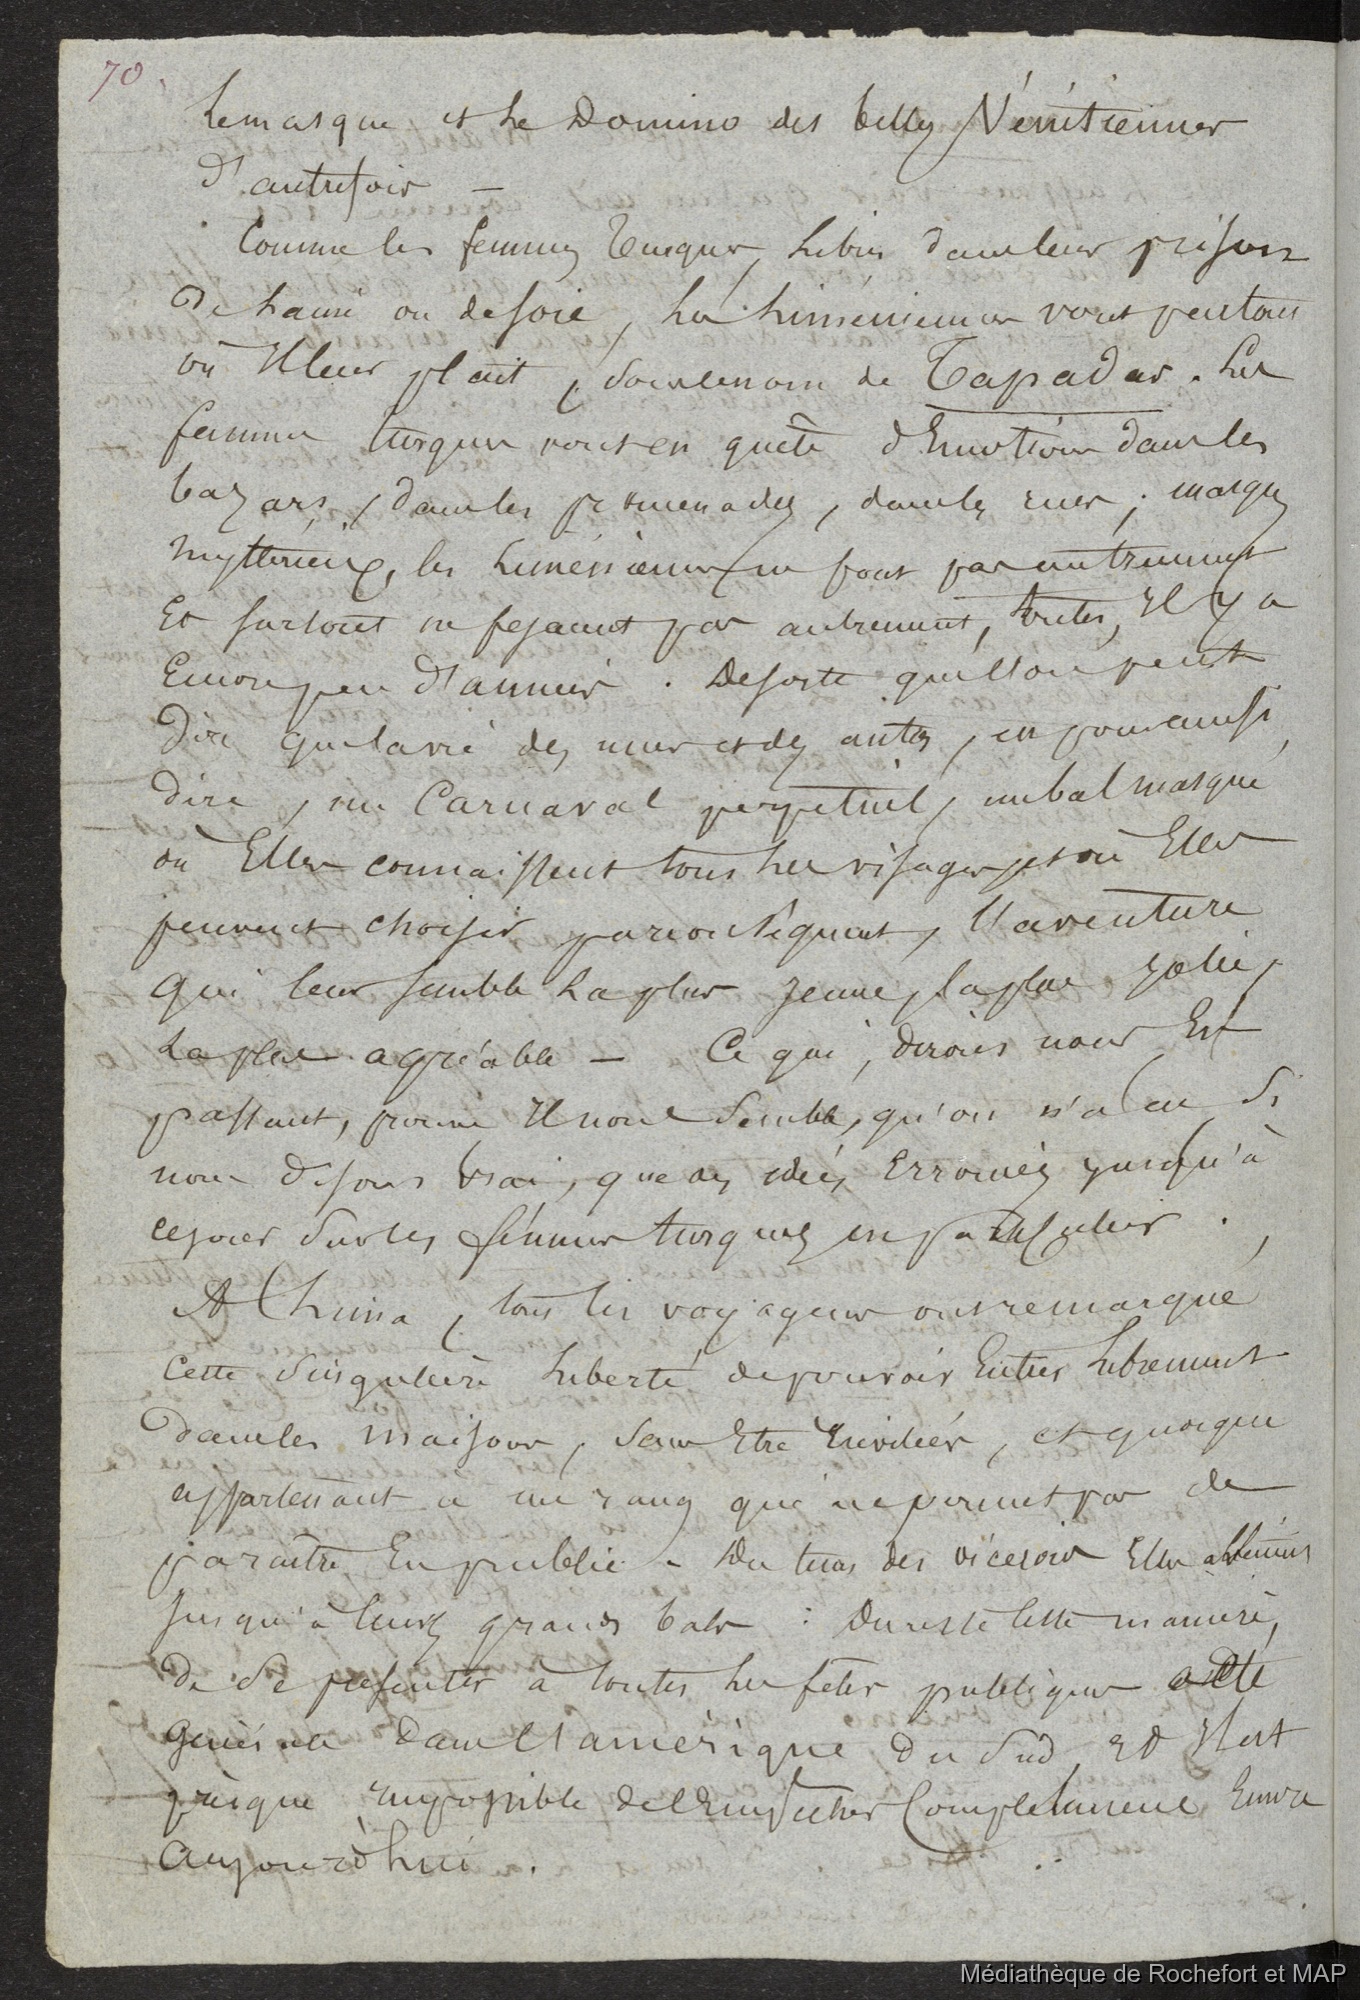 70.
Le masque et le Domino des belles Vénitiennes
d'autrefois —
Comme les femmes Turques, libres dans leur prison
De laine ou de soie, les liméniennes vont partout
où Il leur plait, sous le nom de Tapadas. Les
femmes turques vont en quête d'Emotions dans les
bazars, dans les promenades, dans les rues; masques
mystérieux, les liméniennes ne font pas autrement
Et surtout ne fesaient pas autrement, toutes, Il y a
Encore peu d'années. De sorte que l'on peut
Dire que la vie des unes et des autres, est pour ainsi
dire, un Carnaval perpétuel, un bal masqué
où Elles connaissent tous les visages, et où Elles
peuvent choisir par conséquent, l'aventure
qui leur semble la plus jeune, la plus jolie,
La plus agréable — Ce qui, dirons nous En
passant, prouve Il nous semble, qu'on n'a eu, Si
nous disons vrai, que des idées Erronées jusqu'à
ce jour sur les femmes turques en particulier.
A Lima, tous les voyageurs ont remarqué
cette singulière liberté de pouvoir Entrer librement
dans les maisons, sans Etre Invitées, et quoique
appartenant à un rang qui ne permet pas de
paraître En public. Du tems des vicerois Elles allaient
jusqu'à leurs grands bals: Du reste cette manière,
de se présenter à toutes les fêtes publiques a été
générale dans l'amérique du Sud, Et Il est
presque Impossible de l'Empêcher Complètement Encore
aujourd'hui.
Médiathèque de Rochefort et MAP